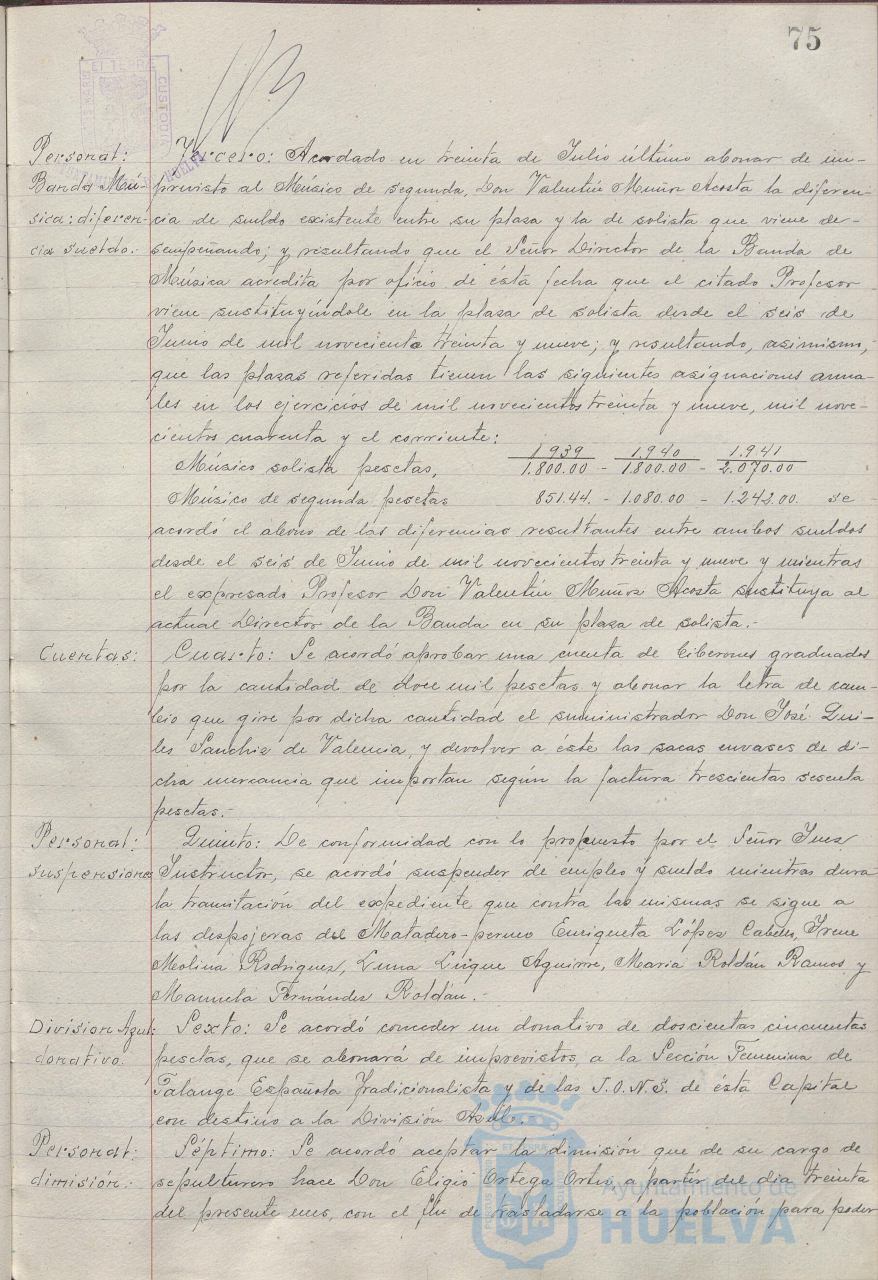 75
Personal:
Banda Mú-
sica: diferen-
cia sueldo.-
Tercero: Acordado en treinta de Julio último abonar de im-
previsto al Músico de segunda, Don Valentín Muñoz Acosta la diferen-
cia de sueldo existente entre su plaza y la de solista que viene de-
sempeñando; y resultando que el Señor Director de la Banda de
Música acredita por oficio de ésta fecha que el citado Profesor
viene sustituyéndole en la plaza de solista desde el seis de
Junio de mil novecientos treinta y nueve; y resultando, asimismo,
que las plazas referidas tienen las siguientes asignaciones anua-
les en los ejercicios de mil novecientos treinta y nueve, mil nove-
cientos cuarenta y el corriente:
1939 1.940 1.941
Músico solista pesetas, 1.800.00 - 1.800.00 - 2.070.00
Músico de segunda pesetas 851.44. - 1.080.00 - 1.242.00. se
acordó el abono de las diferencias resultantes entre ambos sueldos
desde el seis de Junio de mil novecientos treinta y nueve y mientras
el expresado Profesor Don Valentín Muñoz Acosta sustituya al
actual Director de la Banda en su plaza de solista.-
Cuentas:
Cuarto: Se acordó aprobar una cuenta de biberones graduados
por la cantidad de doce mil pesetas y abonar la letra de cam-
bio que gire por dicha cantidad el suministrador Don José Qui-
les Sanchiz de Valencia, y devolver a éste las sacas envases de di-
cha mercancia que importan según la factura trescientas sesenta
pesetas.-
Personal:
suspensiones
Quinto: De conformidad con lo propuesto por el Señor Juez
Instructor, se acordó suspender de empleo y sueldo mientras dura
la tramitación del expediente que contra las mismas se sigue a
las despojeras del Matadero Enriqueta López Irene
Molina Rodriguez, Luna Luque Aguirre, Maria Roldán Ramos y
Manuela Fernández Roldán.-
Division Azul:
donativo.
Sexto: Se acordó conceder un donativo de doscientas cincuenta
pesetas, que se abonará de imprevistos, a la Sección Femenina de
Falange Española Tradicionalista y de las J.O.N.S. de ésta Capital
con destino a la División Azul.-
Personal:
dimisión.-
Séptimo: Se acordó aceptar la dimisión que de su cargo de
sepulturero hace Don Eligio Ortega a partir del dia treinta
del presente mes, con el fin de trasladarse a la población para poder
Ayuntamiento de
HUELVA